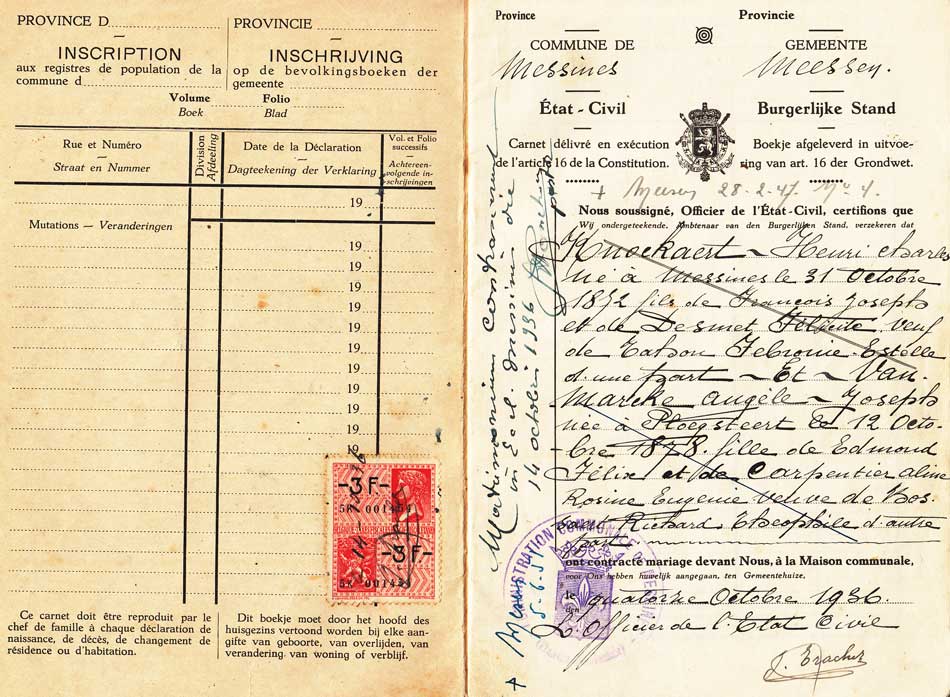 PROVINCE D
PROVINCIE
INSCRIPTION
aux registres de population de la
commune d
INSCHRIJVING
op de bevolkingsboeken der
gemeente
Volume Folio
Boek Blad
Rue et Numéro
Straat en Nummer
Division
Afdeeling
Date de la Déclaration
Dagteekening der Verklaring
Vol. et Folio
successifs
Achtereen-
volgende in-
schrijvingen
19
Mutations — Veranderingen
19
19
19
19
19
19
19
19
-3F-
5K 00145
-3F-
5K 00145
Ce carnet doit être reproduit par le
chef de famille à chaque déclaration de
naissance, de décès, de changement de
résidence ou d'habitation.
Dit boekje moet door het hoofd des
huisgezins vertoond worden bij elke aan-
gifte van geboorte, van overlijden, van
verandering van woning of verblijf.
Province
Provincie
COMMUNE DE
Messines
GEMEENTE
Meessen.
État - Civil
Burgerlijke Stand
Carnet délivré en exécution
de l'article 16 de la Constitution.
Boekje afgeleverd in uitvoe-
ring van art. 16 der Grondwet.
+ Meesen 28-2-47 N° 4.
Nous soussigné, Officier de l'État-Civil, certifions que
Wij ondergeteekende, Ambtenaar van den Burgerlijken Stand, verzekeren dat
Knockaert - Henri Charles
né à Messines le 31 Octobre
1872 fils de François Joseph
et de Desmet Félicité, veuf
de Tahon Febronie Estelle
d'une part - Et - Van
Marcke Angèle - Joseph
née à Ploegsteert le 12 Octo-
bre 1878 fille de Edmond
Félix et de Carpentier Aline
Rosine Eugenie Veuve de Bos
Richard Theophile d'autre
part
ont contracté mariage devant Nous, à la Maison communale,
voor Ons hebben huwelijk aangegaan, ten Gemeentehuize,
le quatorze Octobre 1936.
den
L'Officier de l'Etat Civil
Matrimonium contraxerunt
in Eccl. Messinen die
14 octobri 1936
ADMINISTRATION COMMUNALE